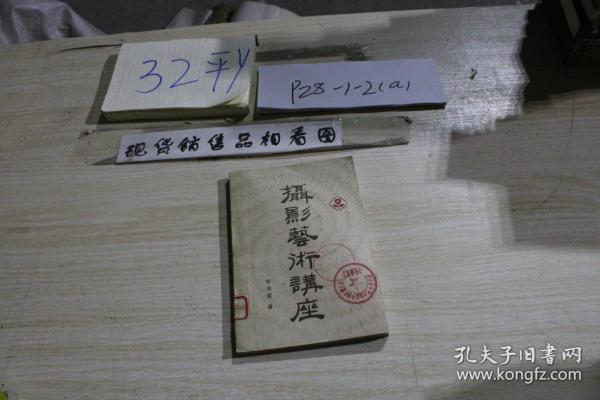 32平y
P28-1-2(a)
现货销售品相看图
攝影藝術講座
孔夫子旧书网
www.kongfz.com